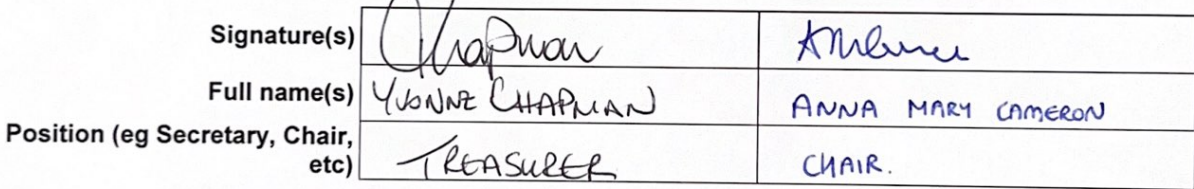 Signature(s) Chapman
Full name(s) YVONNE CHAPMAN ANNA MARY CAMERON
Position (eg Secretary, Chair,
etc) TREASURER CHAIR.